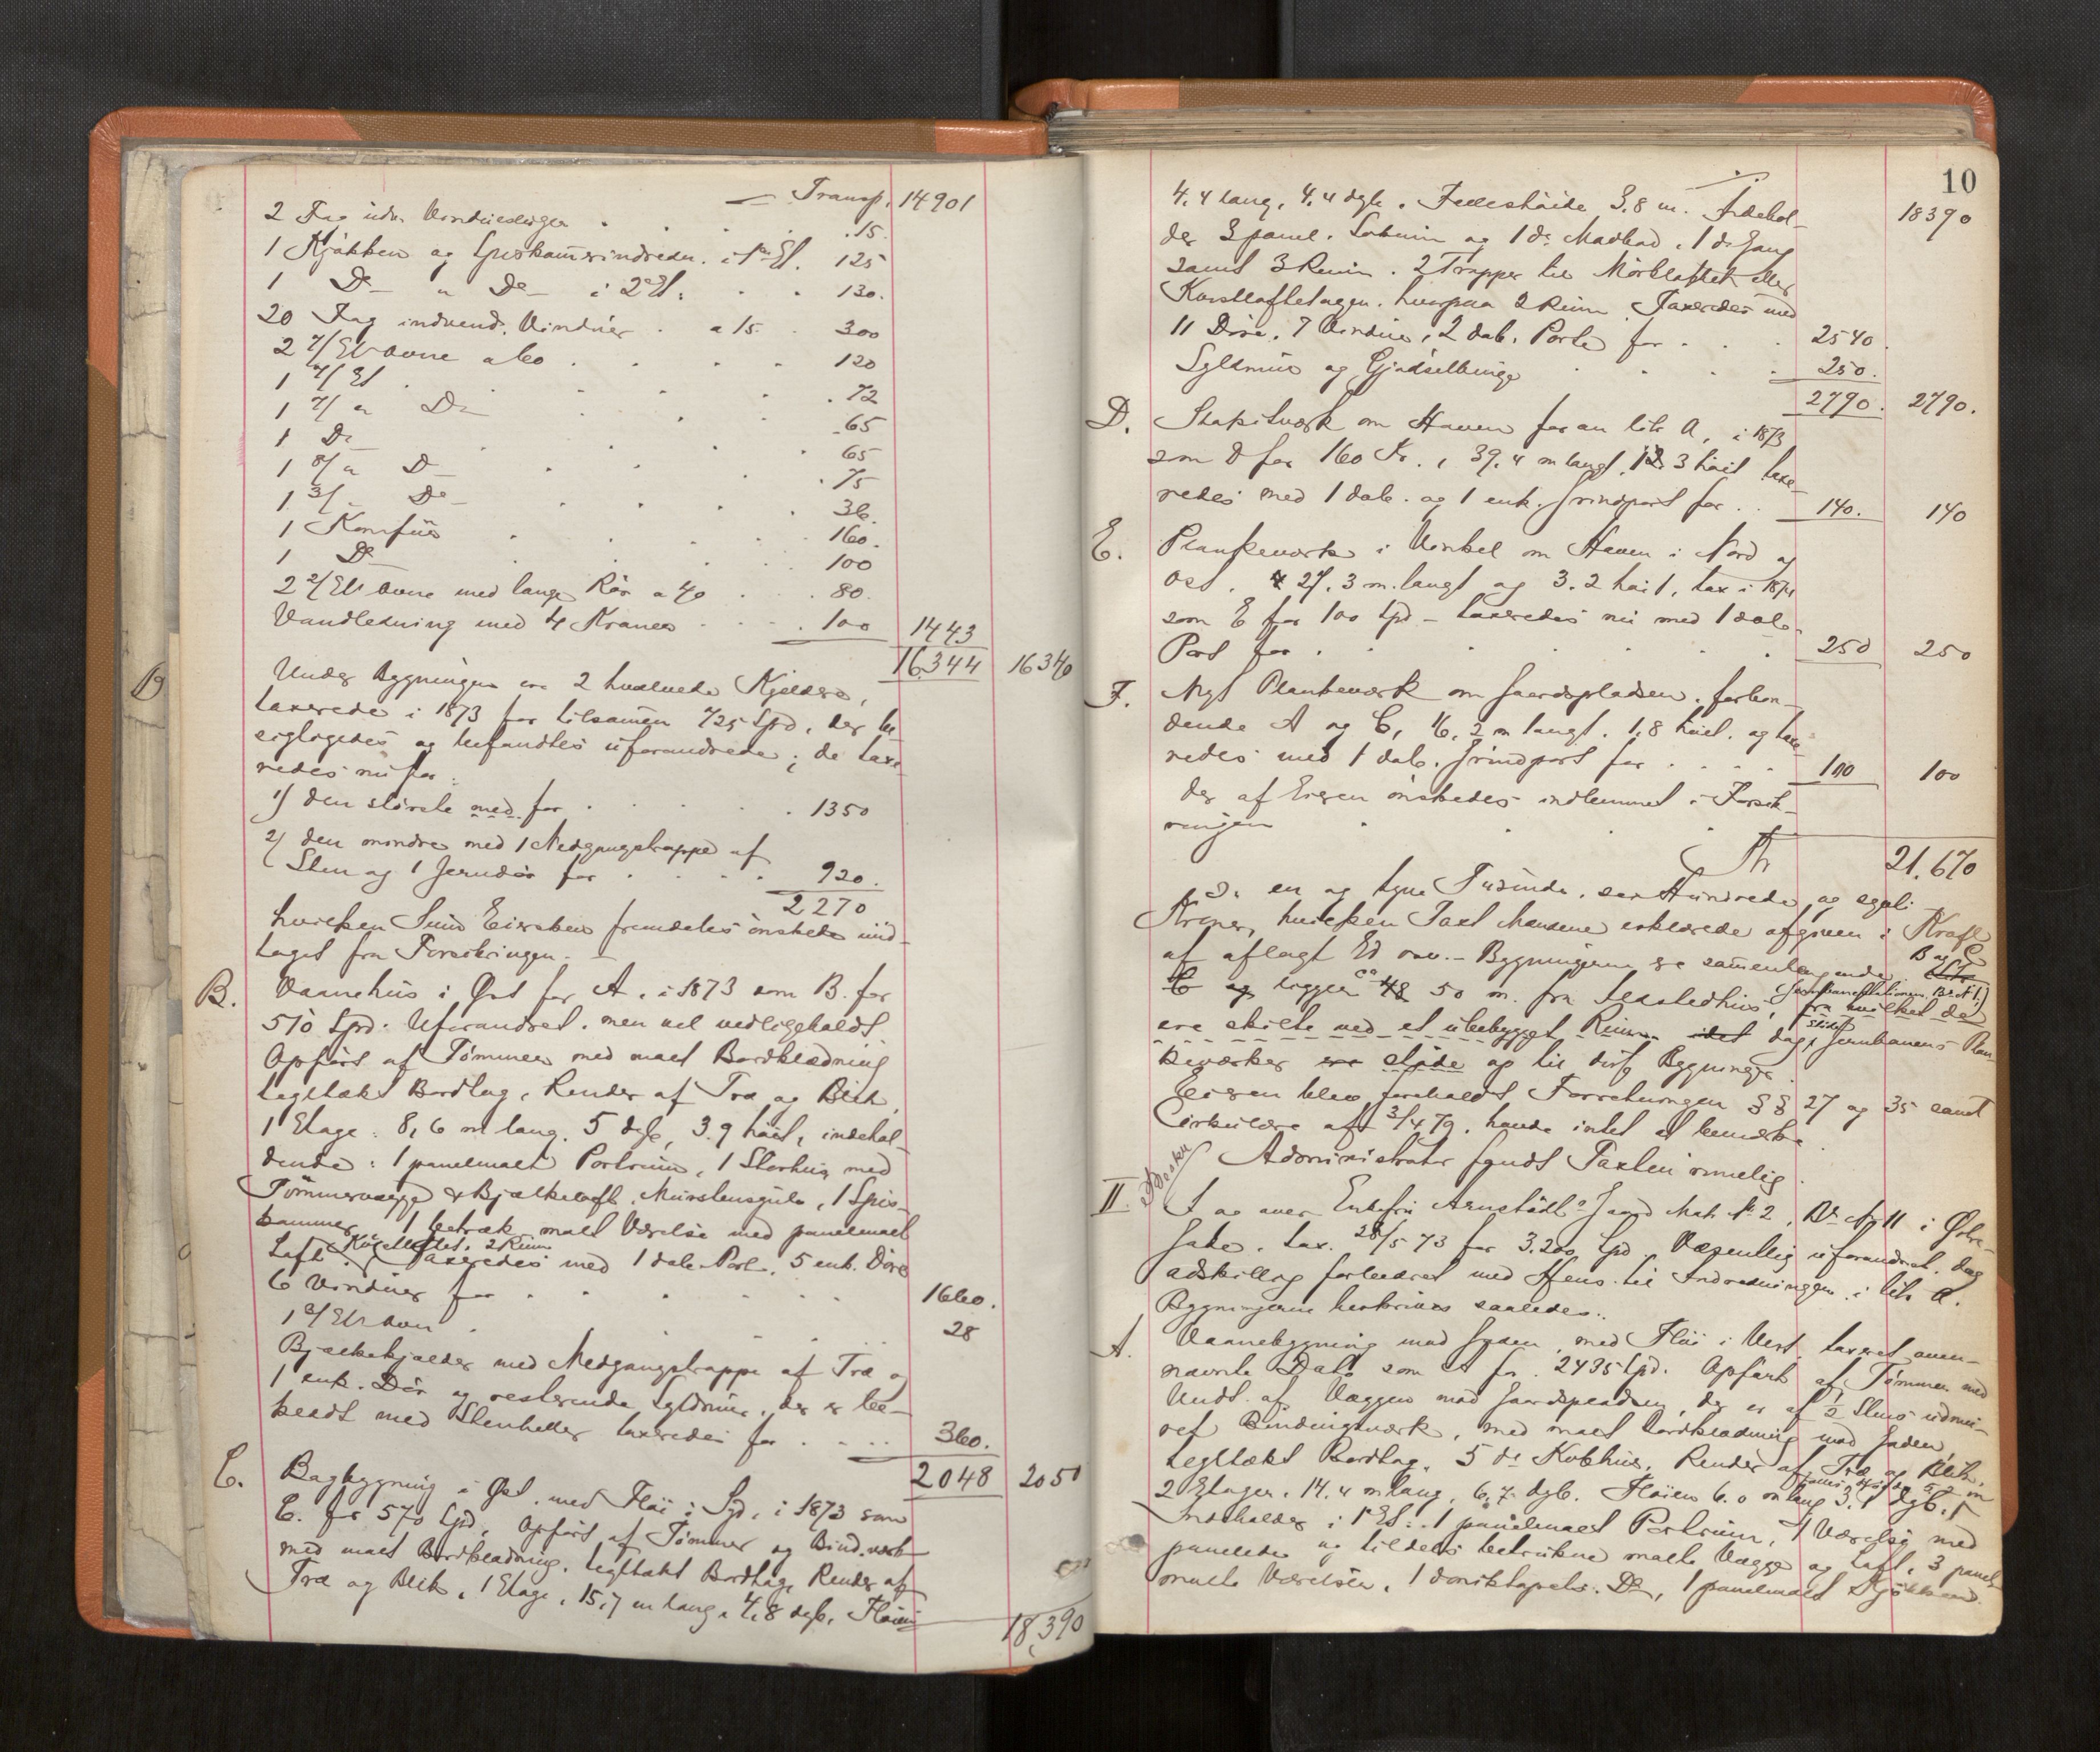 Transp. 14901
2 Fag udv. Vinduesluger . . . . 15.
1 Kjøkken og Spiskamerindredn. i 1ste Et. 125
1 Do „ Do i 2d Et. . . 130.
20 Fag indvend. Vinduer . a 15 . 300
2 7/ Et Ovne a 60 . . . . 120
1 4/ Et . . . . . 72
1 7/ „ Do . . . 65
1 Do . . . . 65
1 8/ „ D . . . 75
1 3/ „ Do . . . . 36.
1 Komfur . . . . 160.
1 Do . . . . 100
2 2/ Et Ovne med lange Rør a 40 . . . 80.
Vandledning med 4 Kraner . . . . 100 1443
16344 16340
Under Bygningen ere 2 hvælvede Kjeldere,
taxerede i 1873 for tilsamen 725 Spd, der be-
sigtigedes og befandtes uforandrede; de taxe-
redes nu for:
1) den største med for . . . . . 1350
2) den mindre med 1 Nedgangstrappe af
Sten og 1 Jerndør for . . . . 920.
2270
hvilken Sum Eiersken fremdeles ønskede und-
taget fra Forsikringen. —
B. Vaanehus i Øst for A, i 1873 som B. for
510 Spd. Uforandret, men vel vedligeholdt
Opført af Tømmer med malt Bordklædning
tegltækt Bordtag, Render af Træ og Blik,
1 Etage: 8,6 m lang, 5 dyb, 3.9 høit, indehol-
dende: 1 panelmalt Portrum, 1 Storhus med
Tømmervægge & Bjælkeloft, Murstensgulv, 1 Spis-
kammer, 1 betræk malt Værelse med panelmalt
Loft. Kvistloftet, 2 Rum
Taxeredes med 1 dob. Port, 5 enk. Døre
6 Vinduer for . . . . . . 1660.
1 2/ Et Ovn . . . . 28
Bjælkekjelder med Nedgangstrappe af Træ og
1 enk. Dør og resterende Syldmur, der er be-
klædt med Stenheller taxeredes for . . . . 360.
2048 2050
C. Bagbygning i Øst, med Fløi i Syd, i 1873 som
C. for 570 Spd, Opført af Tømmer og Bind.verk
med malt Bordklædning, tegltækt Bordtag, Render af
Træ og Blik, 1 Etage, 15,7 m lang, 4,8 dyb, Fløien
18,390
10
4,4 lang, 4,4 dyb, Fælleshøide 3,8 m. Indehol- 18390
der 3 panel. Loburin og 1 do Madbod, 1 do Gang
samt 3 Rum. 2 Trapper til Mørkloftet eller
Kvistloftetagen, hvorpaa 2 Rum. Taxeredes med
11 Døre, 7 Vinduer, 2 dob. Porte for . . . 2540.
Syldmur og Gjødselbinge . . . . 250.
2790. 2790.
D. Stakitværk om Haven foran litr A, i 1873
som D for 160 Kr., 39,4 m langt, 1,3 høit taxe-
redes med 1 dob. og 1 enk. Grindport for . . 140. 140
E. Plankeværk i Vinkel om Haven i Nord og
Ost, 27,3 m. langt og 3.2 høit, tax i 1874
som E for 100 Spd - taxeredes nu med 1 dob.
Port for . . . . . . 250 250
F. Nyt Plankeværk om Gaardspladsen, forbin-
dende A og C, 16,2 m langt, 1,8 høit, og taxe-
redes med 1 dob. Grindport for . . . . 100 100
der af Eieren ønskedes indlemmet i Forsik-
ringen . . . .
Kr 21,670
er en og tyve Tusinde, sex Hundrede og sytti
Kroner, hvilken Taxt Mændene erklærede afgiven i Kraft
af aflagt Ed osv. - Bygningerne ere samenhængende. B og C
C og ligger ca 48 50 m. fra Lexstedhus, (Jernbanestationen Br N 1.) fra hvilket de
ere skilte ved et ubebygget Rum, idet dog Jernbanens Plan-
keværker ere støde op til disse Bygninger.
Eieren blev foreholdt Forretningen §§ 27 og 35 samt
Cirkulære af 3/4 79, havde intet at bemærke.
Administrator fandt Taxten rimelig.
II. I og over Enkefru Arnstadts Gaard Mat. No 2, Br No 11 i Østre-
Gade, tax. 28/5 73 for 3,200 Spd. Væsentlig uforandret, dog
adskillig forbedret med Hens. til Indredningen i litr A.
Bygningerne beskrives saaledes:
A. Vaanebygning mod Gaden, med Fløi i Vest, taxeret oven-
nævnte Dato som A for 2435 Spd. Opført af Tømmer med
Undt. af Væggen mod Gaardspladsen, der er af 1/2 Stens udmu-
ret Bindingsværk, med malt Bordklædning mod Gaden,
tegltækt Bordtag, 5 do Kobhus, Render af Træ og Blik,
2 Etager. 14,4 m lang, 6,7 dyb. Fløien 6.0 m lang 3,1 dyb,
Indeholder i 1st Et.: 1 panelmalt Portrum, 1 Værelse med
panelede og tildels betrukne malte Vægge og Loft, 3 panel-
malte Værelser, 1 do, 1 panelmalt Kjøkken